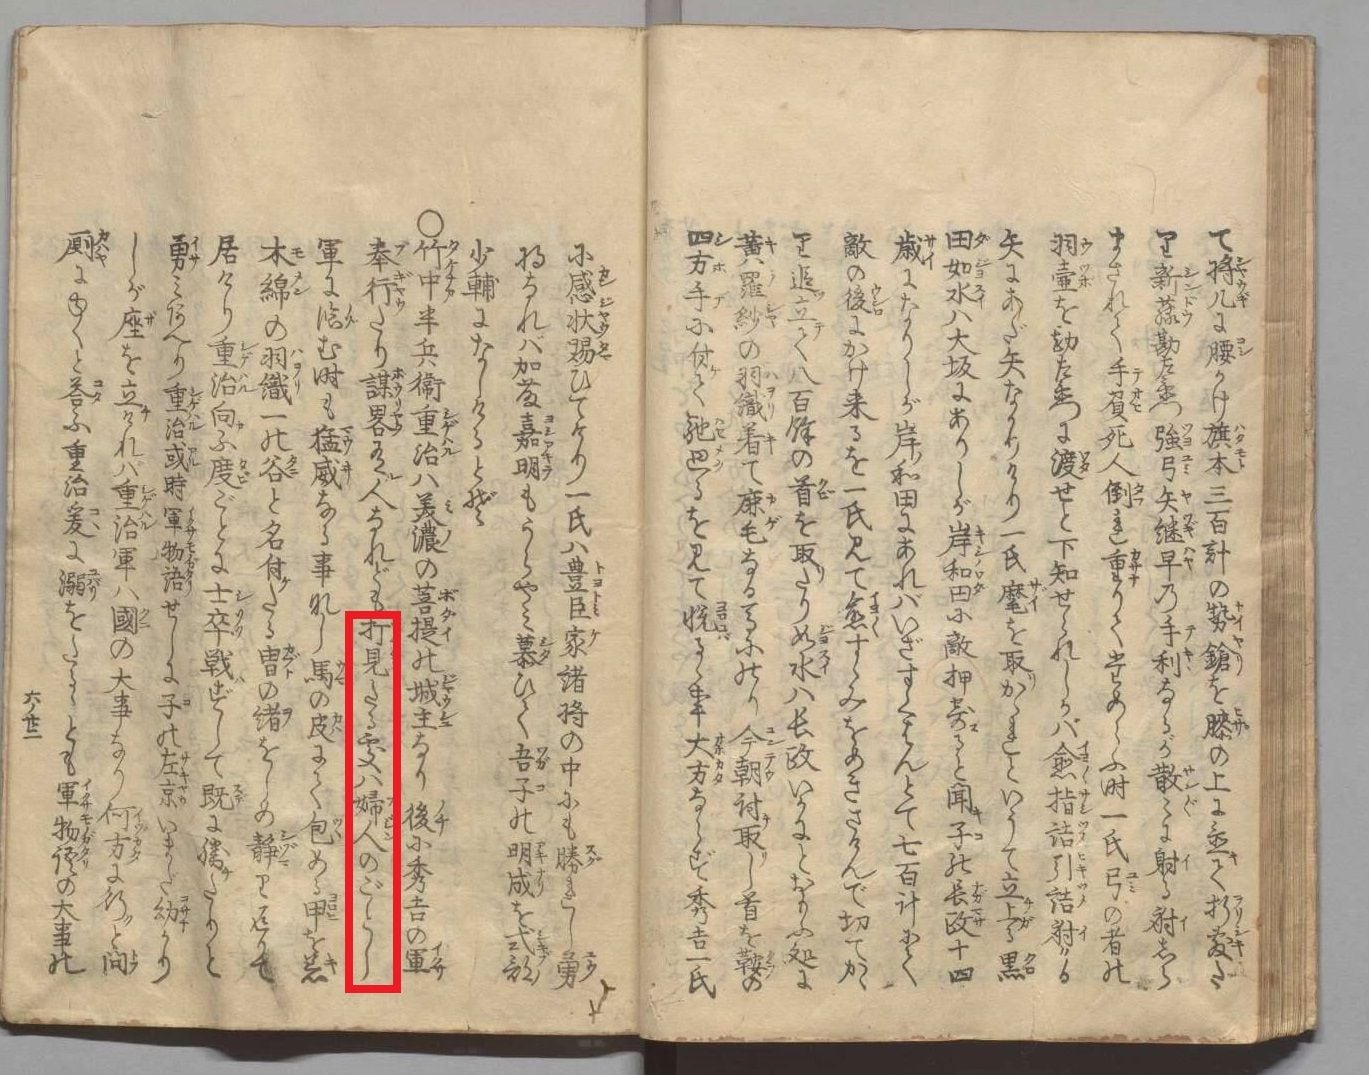 て将几に腰かけ旗本三百計の勢鎗を膝の上に立てく折敷た
り新藤勘左衛門強弓矢継早乃手利なるが散々に射る射しら
まされて手負死人倒れ重りて あらふ時一氏弓の者に
羽壷を勘左衛門に渡せと下知せられしバ愈指詰引詰射ける
矢にあだ矢なかりけり一氏麾を取かゝれといつて立上る黒
田如水ハ大坂にありしが岸和田に敵押寄ると聞子の長政十四
歳になりしが岸和田にあれバいざすくはんとて七百計にて
敵の後にかけ来るを一氏見て愈すゝみをめきさけんで切てかゝ
り追立て八百餘の首を取たり如水ハ長政いかにとおもふ処に
黄羅紗の羽織着て鹿毛なる馬にのり今朝討取し首を鞍の
四方手に付て馳廻るを見て悦るゝ事大方ならず秀吉一氏
に感状賜ひてけり一氏ハ豊臣家諸将の中にも勝れし勇
将なれバ加藤嘉明もうらやミ慕ひて吾子の明成を式部
少輔になしけるとぞ
○竹中半兵衛重治ハ美濃の菩提の城主なり後に秀吉の軍
奉行たり謀畧有し人なれども打見たる処ハ婦人のごとし
軍に臨む時も猛威なる事なし馬の皮にて包める甲を着
木綿の羽織一の谷と名付たる冑の緒をしめ静り返りて
居けり重治向ふ度ごとに士卒戦ずして既に勝たりと
勇ミあへり重治或時軍物語せしに子の左京いまだ幼かり
しが座を立けれバ重治軍ハ國の大事なり何方に行ッと問
厠にゆくと答ふ重治爰に溺をたるゝとも軍物語の大事の
六ノ廿二